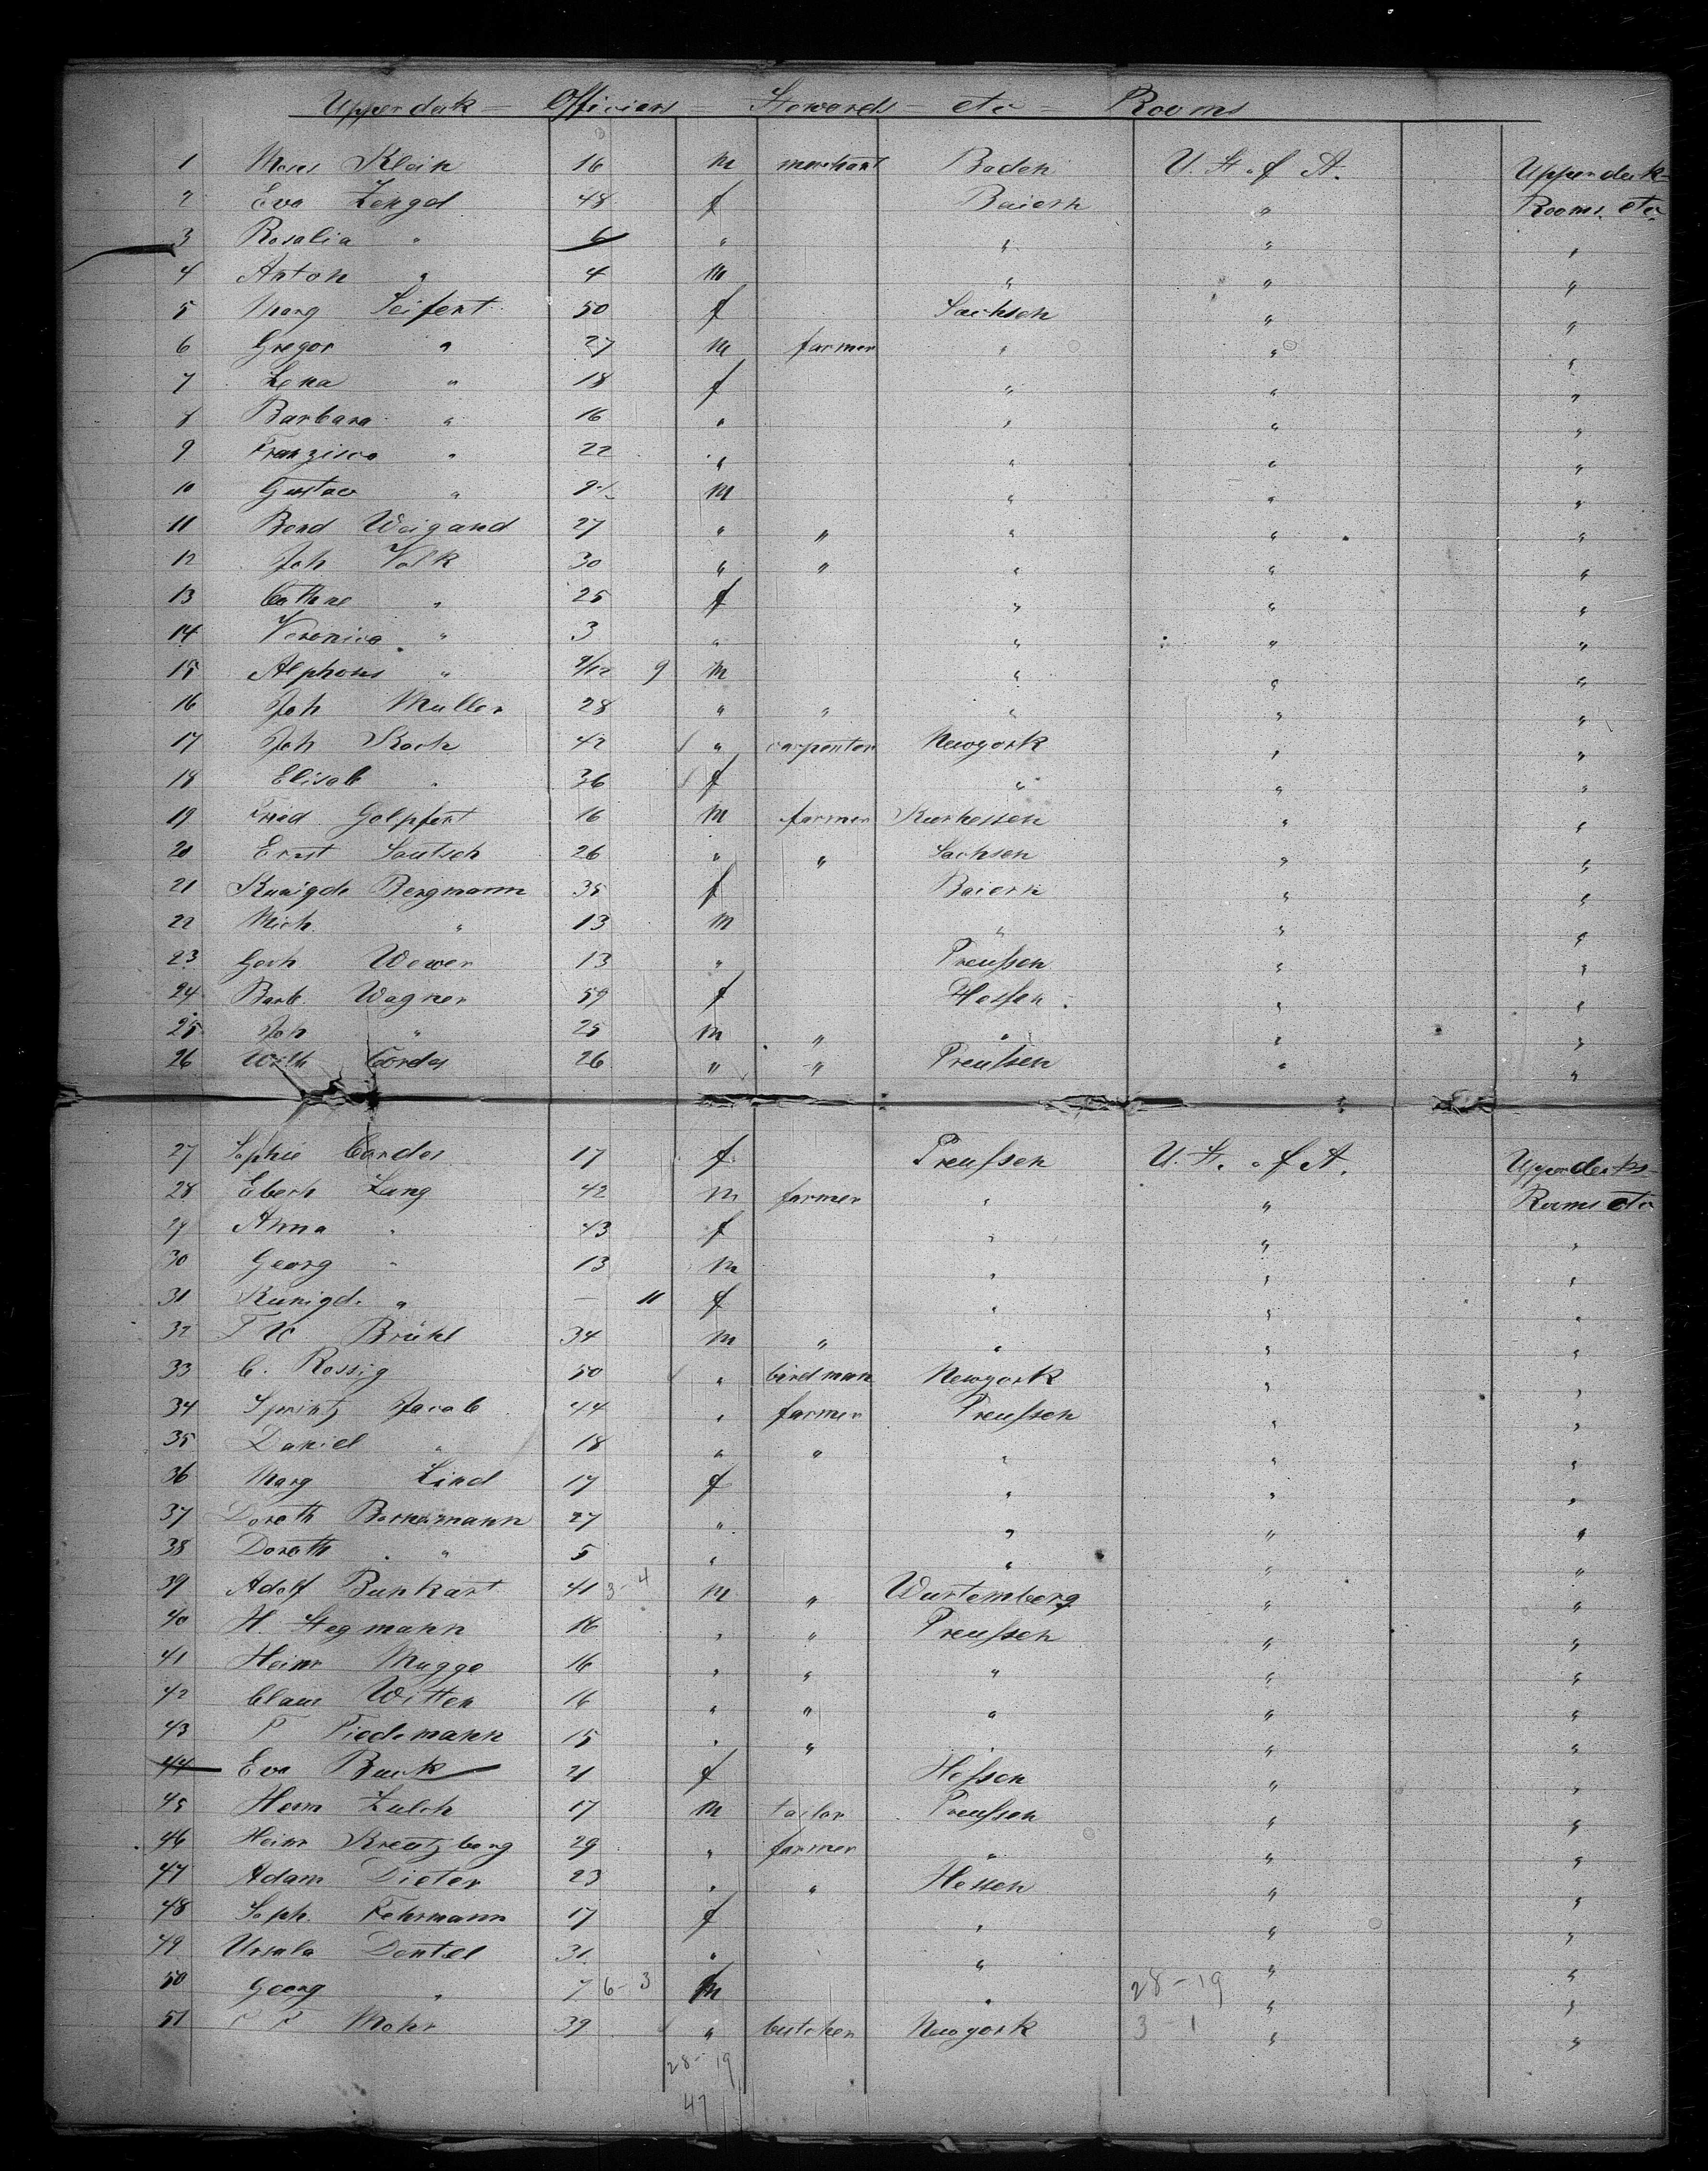 Upperdeck = Officiers = Stewards = etc = Rooms
1 Moses Klein 16 m merchant Baden U. St. of A. Upperdeck-
2 Eva Zengel 48 f Baiern " Rooms. etc
3 Rosalia " 6 " " " "
4 Anton " 4 m " " "
5 Marg Seifert 50 f Sachsen " "
6 Gregor " 27 m farmer " " "
7 Lena " 18 f " " "
8 Barbara " 16 " " " "
9 Franzisca " 22 " " " "
10 Gustav " m " " "
11 Bend Weigand 27 " " " " "
12 Joh Volk 30 " " " " "
13 Cathne " 25 f " " "
14 Veronica " 3 " " " "
15 Alphons " 9/12 9 m " " "
16 Joh Muller 28 " " " " "
17 Joh Koch 42 " carpenter Newyork " "
18 Elisab " 36 f " " "
19 Fried Golpfert 16 m farmer Kurhessen " "
20 Ernst Sautsch 26 " " Sachsen " "
21 Kunigde Bergmann 35 f Baiern " "
22 Mich. " 13 m " " "
23 Gerh Wewer 13 " Preußen " "
24 Barb. Wagner 59 f Heßen " "
25 Joh " 25 m " " " "
26 Wilh Cordes 26 " " Preußen " "
27 Sophie Cordes 17 f Preußen U. St. of A. Upperdecks-
28 Eberh Lang 42 m farmer " " Rooms etc
29 Anna " 43 f " " "
30 Georg " 13 m " " "
31 Kunigd. " — 11 f " " "
32 Brühl 34 m " " " "
33 C. Rossig 50 " birdman Newyork " "
34 Sprintz Jacob 44 " farmer Preußen " "
35 Daniel " 18 " " " " "
36 Marg Lind 17 f " " "
37 Doroth 27 " " " "
38 Doroth " 5 " " " "
39 Adolf Bunkart 41 3-4 m " Wurtemberg " "
40 H. Stegmann 16 " " Preußen " "
41 Heinr Mugge 16 " " " " "
42 Claus Witten 16 " " " " "
43 Tiedemann 15 " " " " "
44 Eva Buck 21 f Heßen " "
45 Herm Zulch 17 m tailor Preußen " "
46 Heinr Kreutzberg 29 " farmer " " "
47 Adam Dieter 23 " " Hessen " "
48 Soph. Fehrmann 17 f " " "
49 Ursula Dentel 31 " " " "
50 Georg " 7 6-3 m " 28-19 " "
51 Mohr 39 " butcher Newyork 3-1 " "
28-19
47